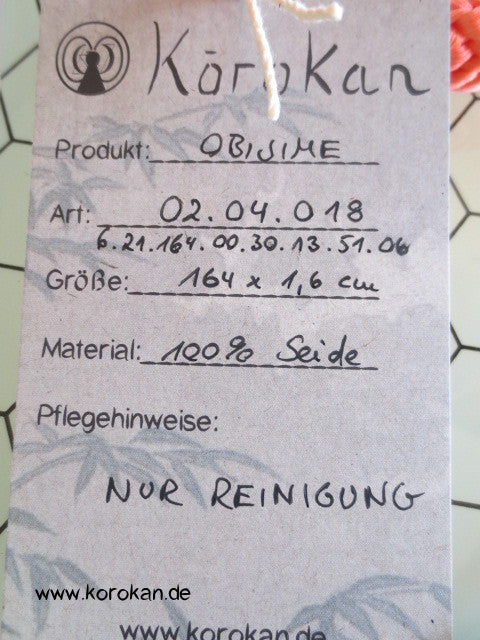 Kōrokan
Produkt: OBIJIME
Art: 02.04.018
6.21.164.00.30.13.51.06
Größe: 164 x 1,6 cm
Material: 100% Seide
Pflegehinweise:
NUR REINIGUNG
www.korokan.de
www.korokan.de